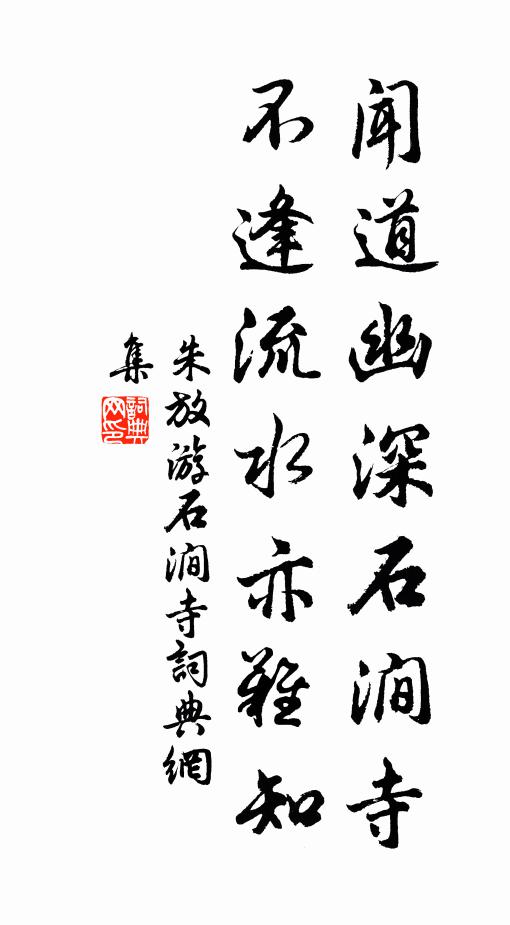 闻道幽深石涧寺
不逢流水亦難知
朱放游石涧寺詞典網
集
詞典網印